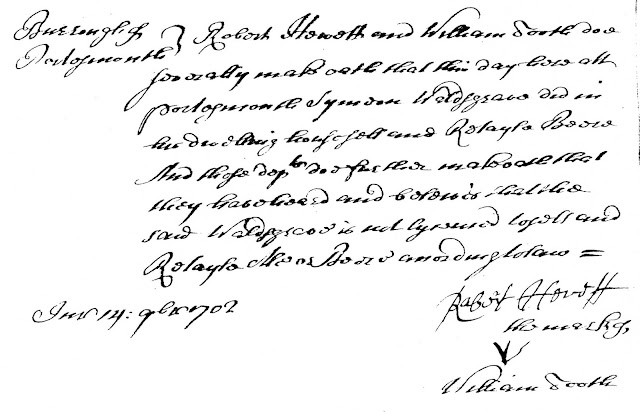 Burrough of
Portesmouth } Robert Hewett and William Tooth doe
severally make oath that this day here att
portesmouth Symon Waldgrave did in
his dwelling house sell and Retayle Beere
And these depts doe further make oath that
they have heard and beleive that the
said Waldgrave is not lycenced to sell and
Retayle Ale or Beere according to law =
Jur 14: 9br 1702
Robert Hewett
the marke of
V
William Tooth